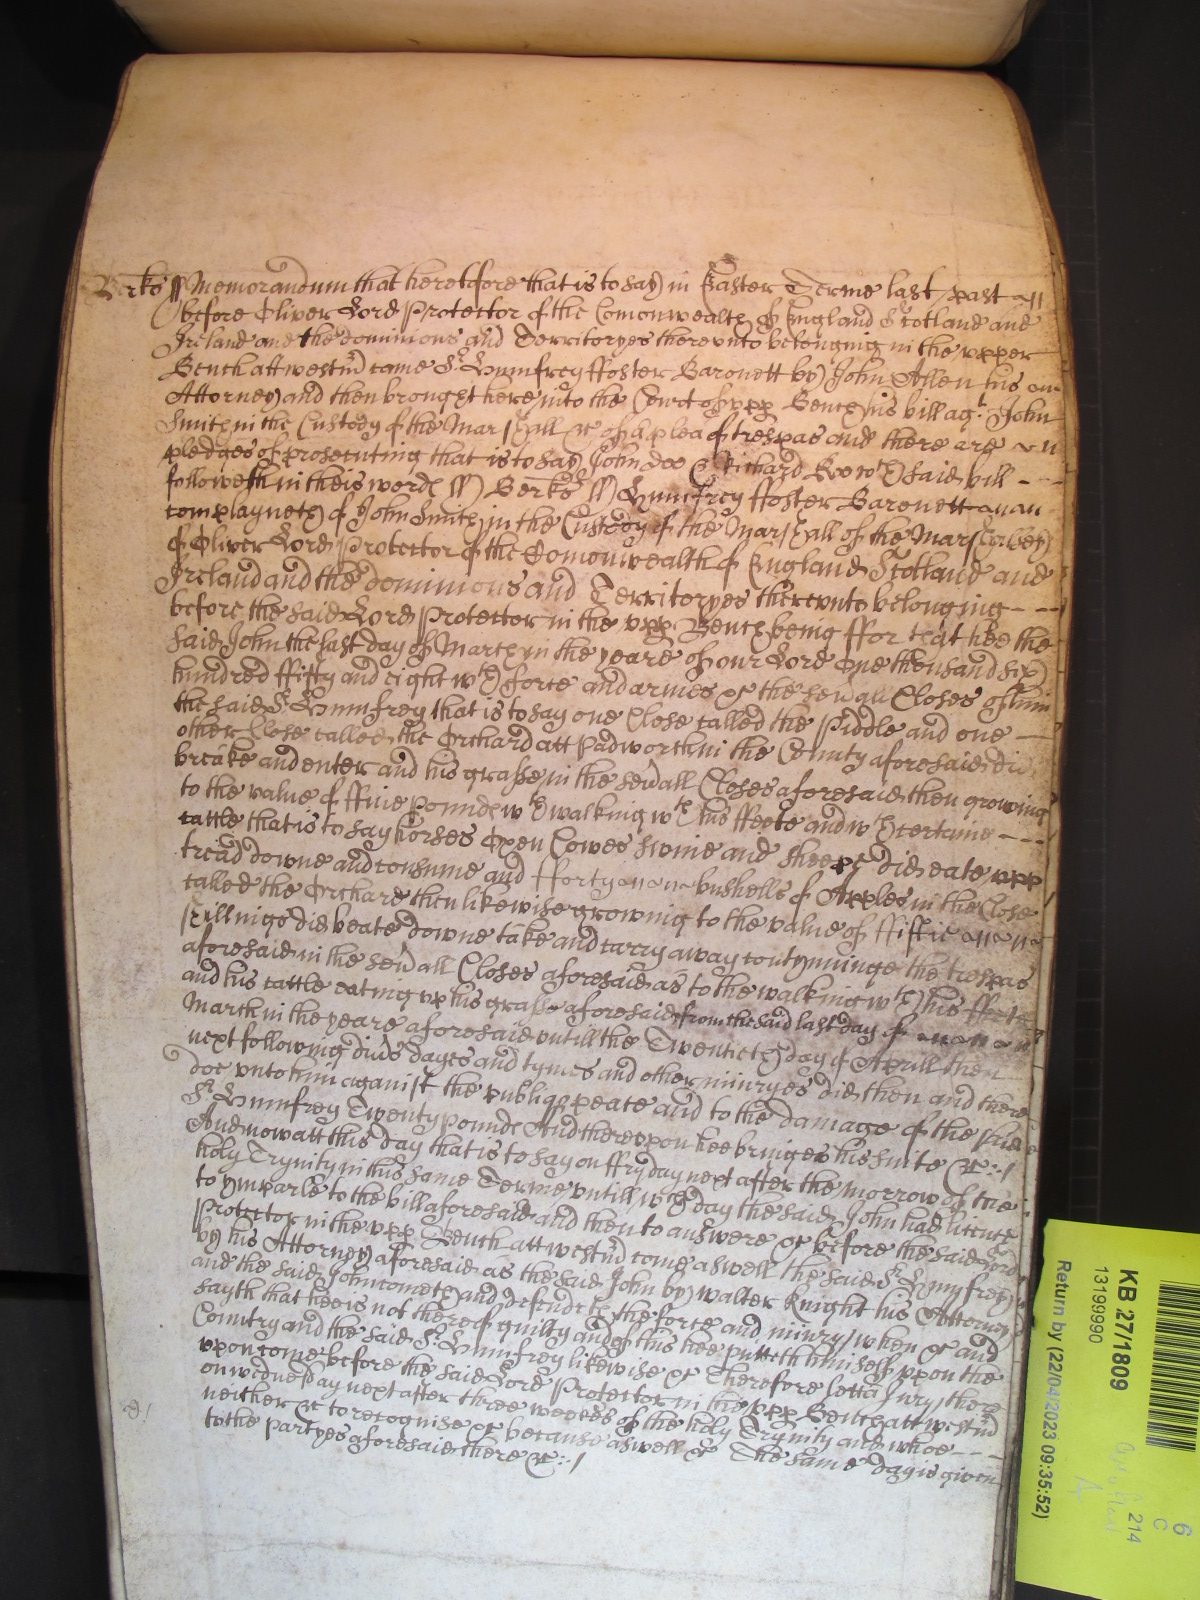 Berks ss Memorandum that heretofore that is to say in Easter Terme last past
before Oliver Lord Protector of the Comonwealth of England Scotland and
Ireland and the dominions and Territoryes thereunto belonging in the upper
Bench att Westm̃ came Sr Humfrey Foster Baronett by John Allen his
Attorney and then brought here into the Court of upp Bench his bill agt John
Smith in the Custody of the Marshall &c of a plea of trespas and there are
pledges of prosecuting that is to say John Doo & Richard Roo wch said bill
followeth in theis words ss Berks ss Humfrey ffoster Baronett
complayneth of John Smith in the Custody of the Marshall of the Marshalsey
of Oliver Lord Protector of the Comonwealth of England Scotland and
Ireland and the dominions and Territoryes thereunto belonging
before the said Lord Protector in the upp Bench being ffor that hee the
said John the last day of March in the yeare of our Lord one thousand six
hundred ffifty and eight wth force and armes &c the sevall Closes of him
the said Sr Humfrey that is to say one Close called the Piddle and one
other Close called the Orchard att Padworth in the County aforesaid did
breake and enter and his grasse in the sevall Closes aforesaid then growing
to the value of ffive pounds wth walking wth his ffeete and wth certaine
cattle that is to say horses Oxen Cowes swine and sheepe did eate upp
tread downe and consume and fforty bushells of Apples in the Close
called the Orchard then likewise growing to the value of ffiftie
shillings did beate downe take and carry away contynuinge the trespas
aforesaid in the sevall Closes aforesaid as to the walking wth his ffeete
and his cattle eating upp his grasse aforesaid from the said last day of
March in the yeare aforesaid untill the Twentieth day of Aprill then
next following divs dayes and tymes and other iniuryes did then and there
doe unto him against the publiq peace and to the damage of the said
Sr Humfrey Twenty pounds And thereupon hee bringes his suite &c
And now att this day that is to say on ffryday next after the morrow of the
holy Trynity in this same Terme untill wch day the said John had licence
to ymparle to the bill aforesaid and then to answere &c before the said Lord
Protector in the upp Bench att Westm̃ come aswell the said Sr Humfrey
by his Attorney aforesaid as the said John by Walter Knight his Attorney
and the said John cometh and defendeth the force and iniury when &c and
sayth that hee is not thereof guilty and of this hee putteth himself upon the
Country and the said Sr Humfrey likewise &c Therefore lett a Jury there
upon come before the said Lord Protector in the upp Bench att Westm̃
on wednesday next after three weekes of the holy Trynity and whoe
neither &c to recognise &c because aswell &c The same day is given
to the partyes aforesaid there &c
KB 27/1809
13199990
Return by (22/04/2023 09:35:52)
6
C
214